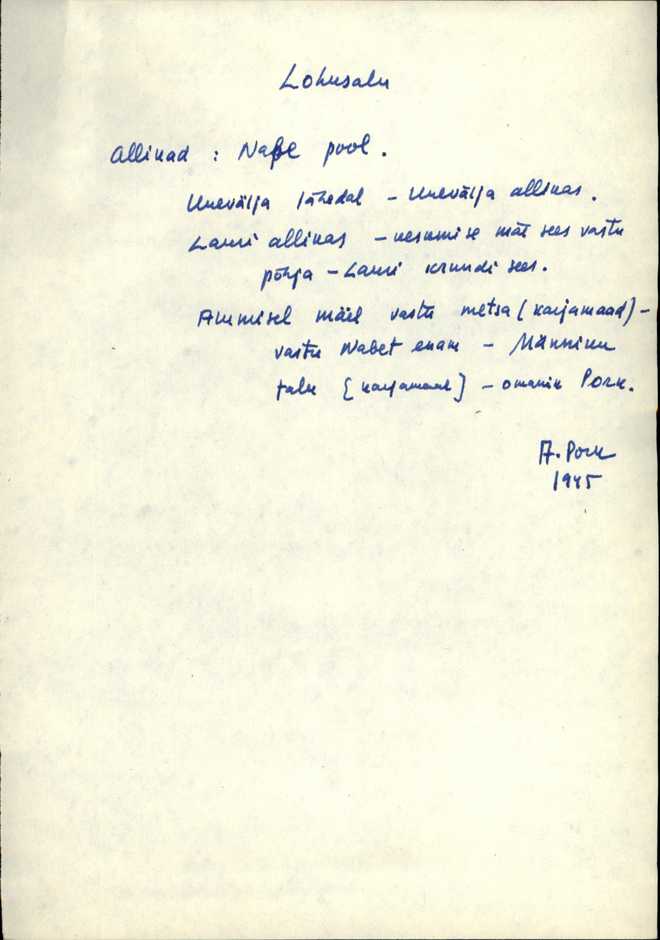 Lohusalu
Allikad : Nabe pool.
Unevälja lähedal – Unevälja allikas.
Lauri allikas – keskmise mäe sees vastu
põhja – Lauri krundi sees.
Ammisel mäel vastu metsa (karjamaad) –
vastu Nabet enam – Männiku
talu [karjamaal] – omanik Pork.
A. Pork
1945